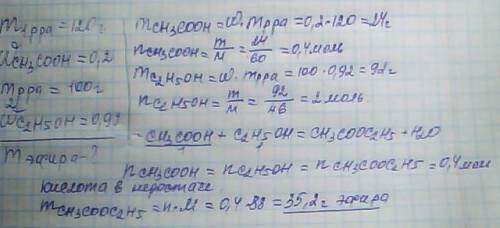 m₁ р-ра = 120г
ωCH₃COOH = 0,2
m₂ р-ра = 100г
ωC₂H₅OH = 0,92
m эфира - ?
mCH₃COOH = ω · m р-ра = 0,2 · 120 = 24г
nCH₃COOH = m/M = 24/60 = 0,4 моль
mC₂H₅OH = ω · m р-ра = 100 · 0,92 = 92г
nC₂H₅OH = m/M = 92/46 = 2 моль
CH₃COOH + C₂H₅OH = CH₃COOC₂H₅ + H₂O
1 1
nCH₃COOH = nC₂H₅OH = nCH₃COOC₂H₅ = 0,4 моль
кислота в недостаче
mCH₃COOC₂H₅ = n · M = 0,4 · 88 = 35,2г эфира